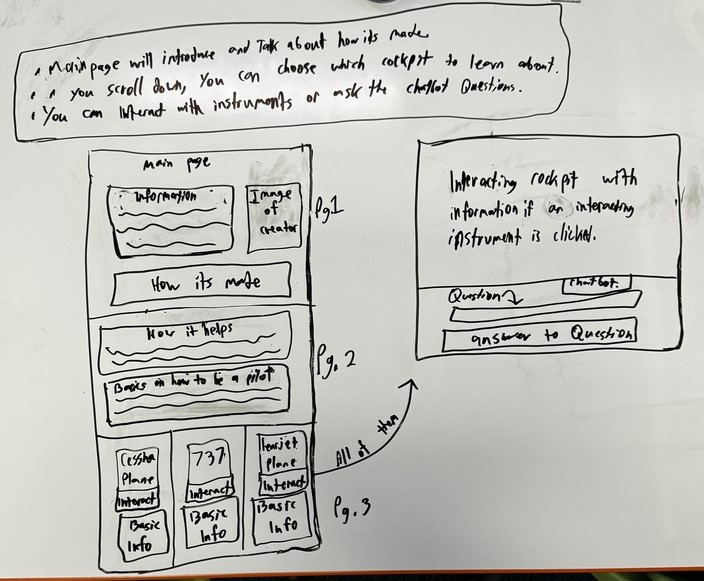 • Main page will introduce and Talk about how its made
• n you scroll down, You can choose which cockpit to learn about.
• You can Interact with instruments or ask the chatbot Questions.
main page
Information
Image
of
creator
Pg1
How its made
How it helps
Basics on how to be a pilot
Pg. 2
Cessna
Plane
Interact
Basic
Info
737
Interact
Basic
Info
Learjet
Plane
Interact
Basic
Info
Pg. 3
All of them
Interacting cockpit with
information if an interacting
instrument is clicked.
Chatbot.
Question
answer to Question